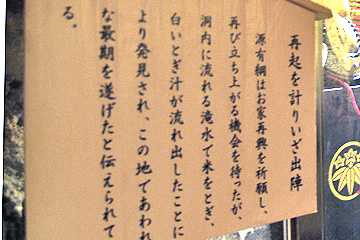 再起を計りいざ出陣
源有綱はお家再興を祈願し、
再び立ち上がる機会を待ったが、
洞内に流れる滝水で米をとぎ、
白いとぎ汁が流れ出したことに
より発見され、この地であわれ
な最期を遂げたと伝えられて
る。